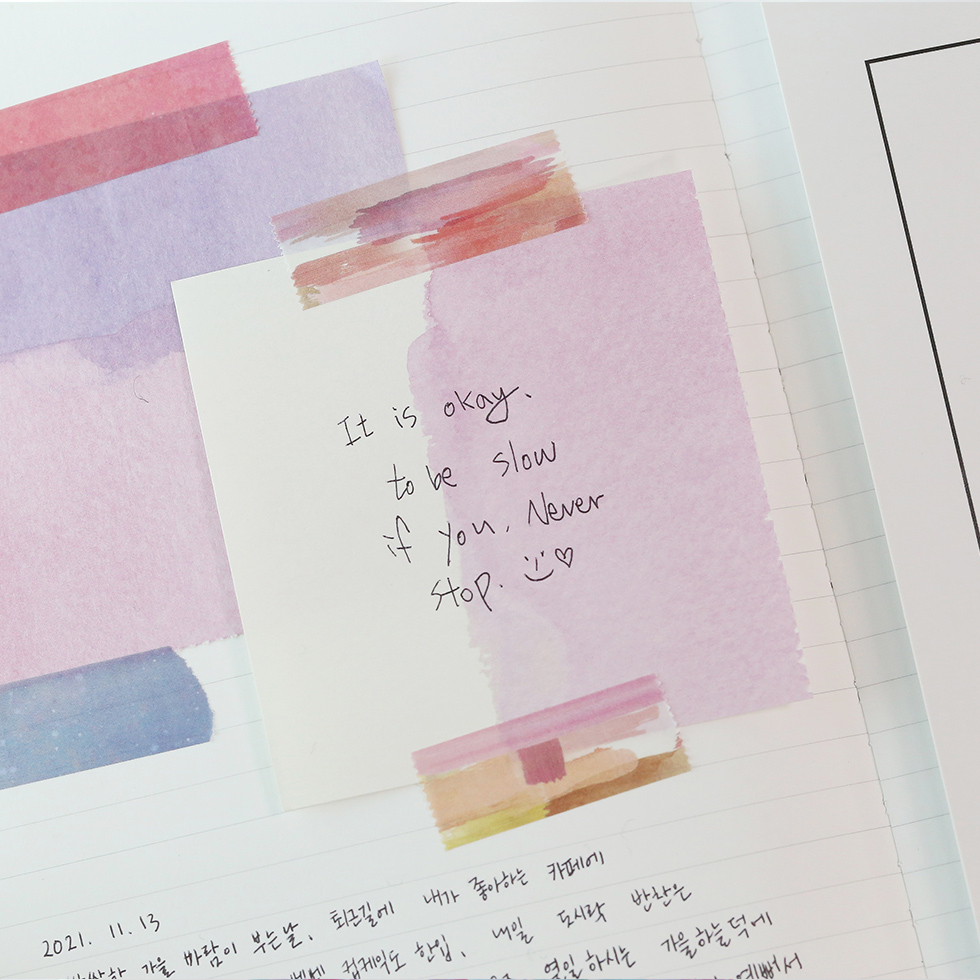 It is okay.
to be slow
if you. Never
stop.
2021. 11. 13
가을 바람이 부는날, 퇴근길에 내가 좋아하는 카페에
컵케익도 한입, 내일 도시락 반찬은
열일하시는 가을하늘덕에
예뻐서